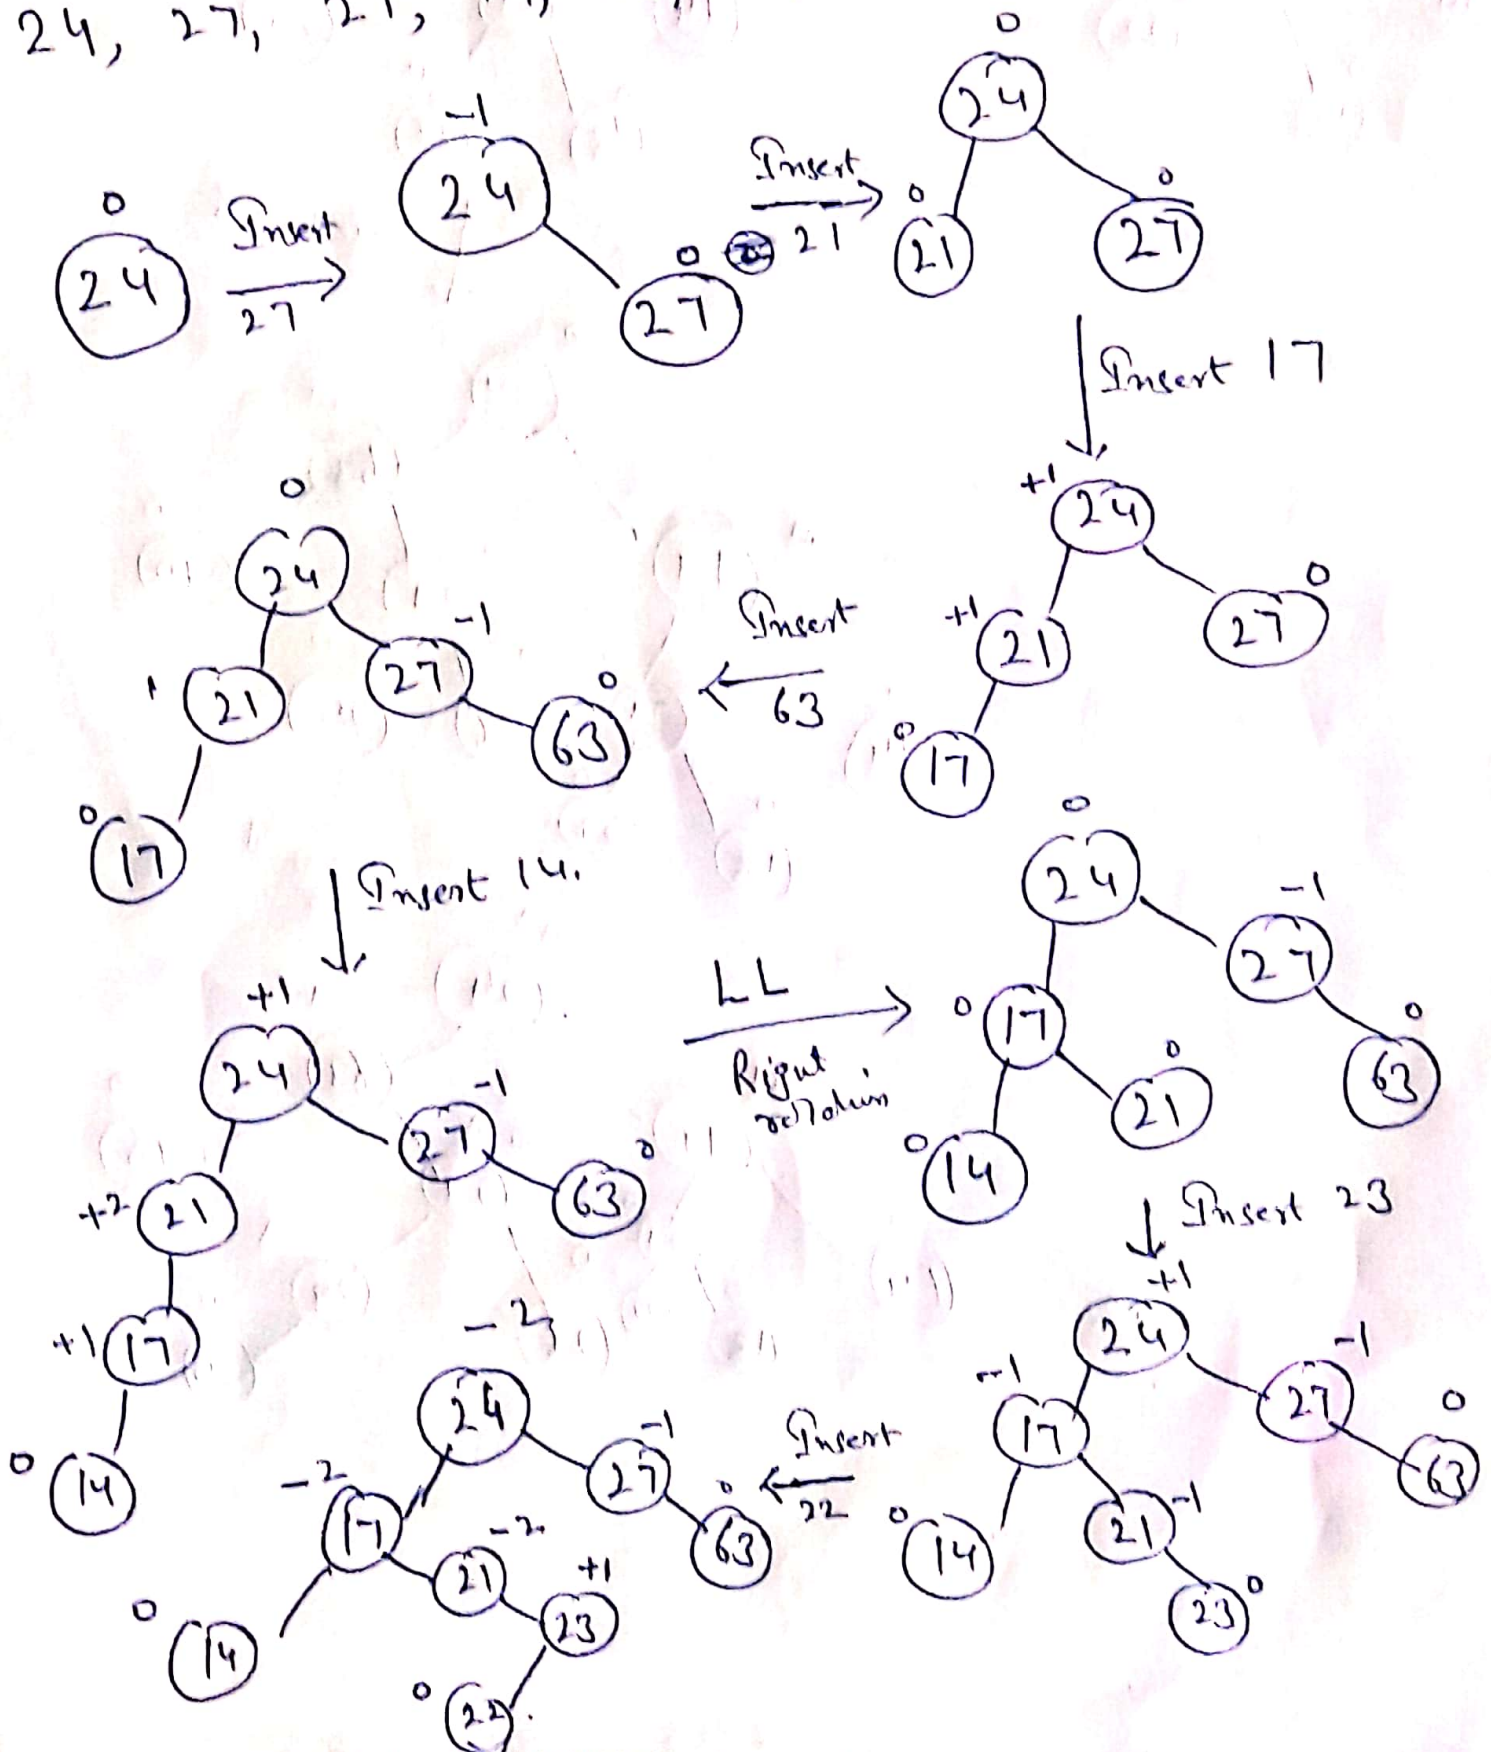 24, 27, 21,
0
24
Insert
27
-1
24
0
27
Insert
21
0
24
0
21
0
27
Insert 17
+1
24
+1
21
0
27
0
17
Insert
63
0
24
1
21
-1
27
0
63
0
17
Insert 14.
+1
24
-1
27
+2
21
0
63
+1
17
0
14
LL
Right
0
24
-1
27
0
17
0
63
0
21
0
14
Insert 23
+1
24
-1
27
-1
17
0
63
0
14
-1
21
0
23
Insert
22
-2
24
-1
27
-2
17
0
63
-2
21
+1
23
0
14
0
22